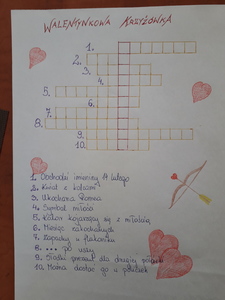 WALENTYNKOWA KRZYŻÓWKA
1.
2.
3.
4.
5.
6.
7.
8.
9.
10.
1. Obchodzi imieniny 14 lutego
2. Kwiat z kolcami
3. Ukochana Romea
4. Symbol miłości
5. Kolor kojarzący się z miłością
6. Miesiąc zakochanych
7. Zapachy u flakoniku
8. ... po uszy
9. Słodki prezent dla drugiej połówki
10. Można dostać go u